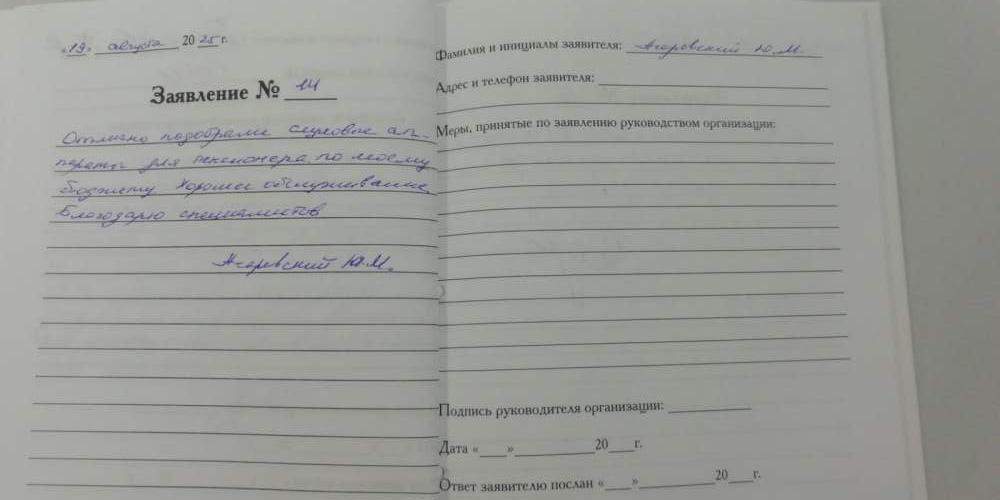 «19» августа 2025 г.
Заявление № 14
Отлично подобрали слуховые ап-
параты для пенсионера, по моему
бюджету. Хорошее обслуживание.
Благодарю специалистов
Ю.М.
Фамилия и инициалы заявителя: Ю.М.
Адрес и телефон заявителя:
Меры, принятые по заявлению руководством организации:
Подпись руководителя организации:
Дата «___» 20___г.
Ответ заявителю послан «___» 20___г.